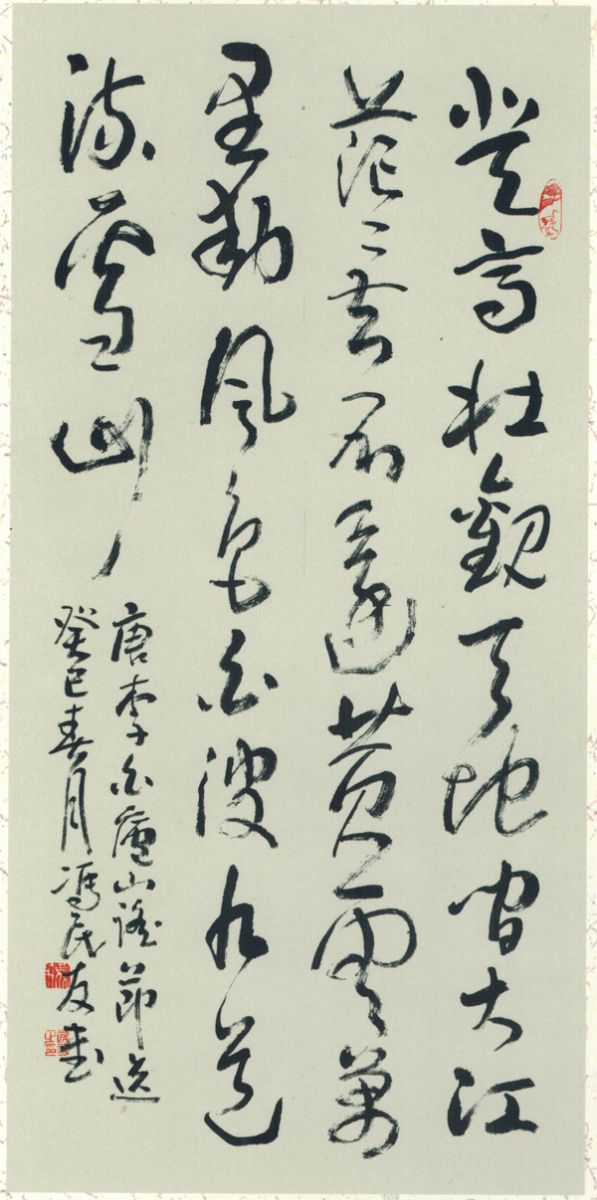 登高壯觀天地間大江
茫々去不還黃雲萬
里動風色白波九道
流雪山
唐李白廬山謠節選
癸巳春月馮民友書